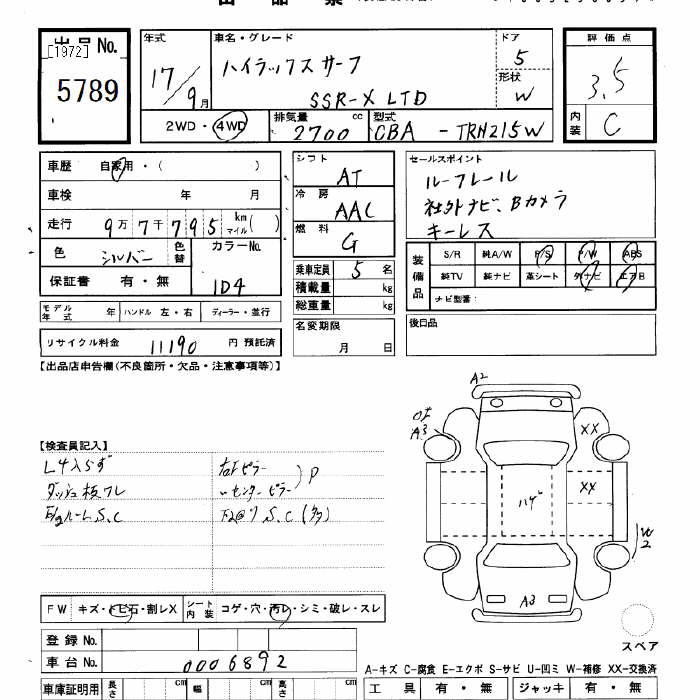 出品票
出品No.
[1972]
5789
年式
17/9月
車名・グレード
ハイラックスサーフ
SSR-X LTD
ドア
5
形状
W
評価点
3.5
内装
C
2WD・4WD
排気量
2700 cc
型式
CBA - TRN215W
車歴 自家用・( )
車検 年 月
走行 9万7千795 km マイル( )
色 シルバー 色替
カラーNo.
1D4
保証書 有・無
シフト
AT
冷房
AAC
燃料
G
乗車定員 5 名
積載量 kg
総重量 kg
セールスポイント
ルーフレール
社外ナビ、Bカメラ
キーレス
装備品
S/R 純A/W P/S P/W ABS
純TV 純ナビ 革シート 外ナビ エアB
ナビ型番:
モデル年式 年 ハンドル 左・右 ディーラー・並行
名変期限
月 日
後日品
リサイクル料金 11190 円 預託済
【出品店申告欄(不良箇所・欠品・注意事項等)】
A2
A3
XX
XX
W2
A3
【検査員記入】
L4入らず
ダッシュ板ワレ
右Fピラー
〃センターピラー
P
S.C
FW キズ・トビ石・割レX シート内装 コゲ・穴・汚レ・シミ・破レ・スレ
登録No.
車台No. 0006892
スペア
A-キズ C-腐食 E-エクボ S-サビ U-凹ミ W-補修 XX-交換済
車庫証明用 長さ cm 幅 cm 高さ cm
工具 有・無 ジャッキ 有・無